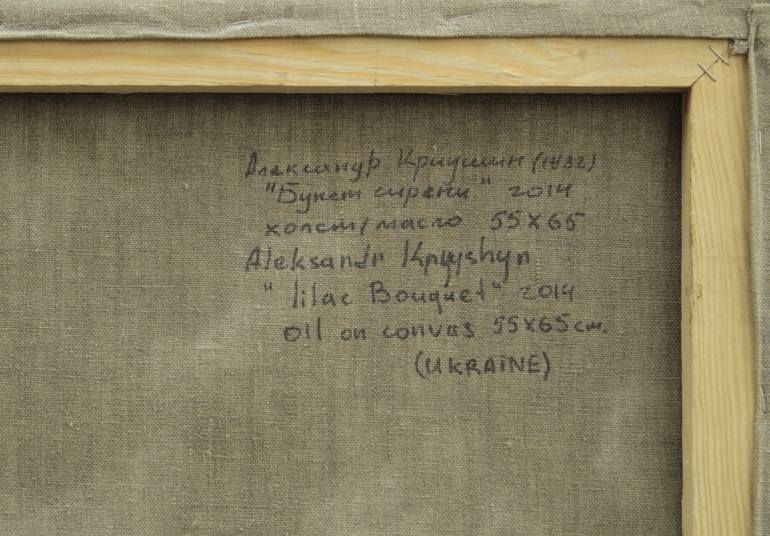 Александр Криушин (1832)
"Букет сирени" 2014
холст/масло 55х65
Aleksandr Kpyyshyn
" lilac Bouquet" 2014
oil on convas 55x65cm.
(UKRAiNE)